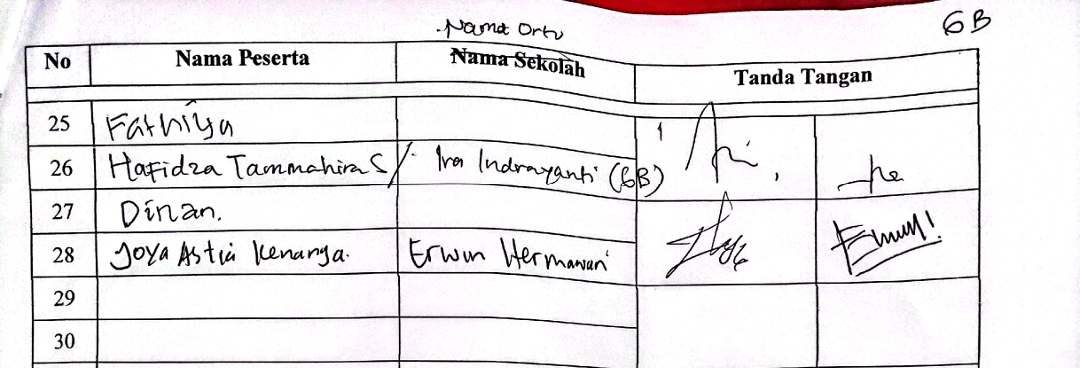 Nama Ortu
6B
No Nama Peserta Nama Sekolah Tanda Tangan
25 Fathiya
26 Hafidza Tammahira S / Ira Indrayanti (6B)
27 Dinan.
28 Joya Astia Kenanga. Erwin Hermawan
29
30